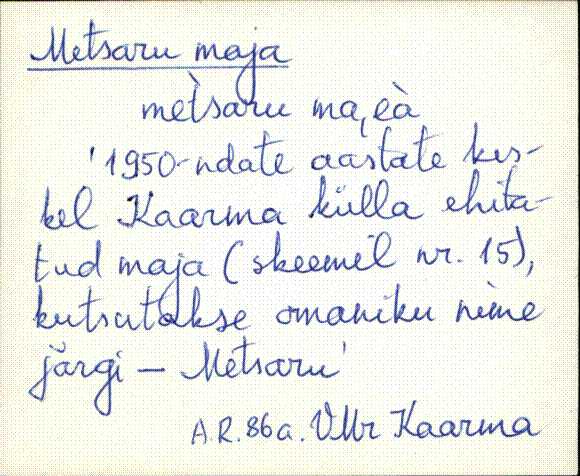 Metsaru maja
mètsaru ma,eà
'1950-ndate aastate kes-
kel Kaarma külla ehita-
tud maja (skeemil nr. 15),
kutsutakse omaniku nime
järgi – Metsaru'
A.R. 86a. VMr Kaarma